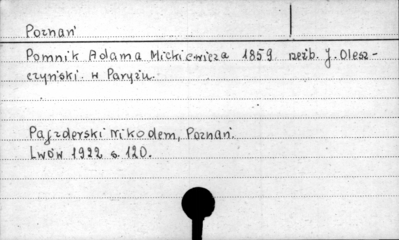 Poznań
Pomnik Adama Mickiewicza 1859 rzeźb. J. Olesz-
czyński. w Paryżu.
Pajzderski Nikodem, Poznań.
Lwów 1922 s. 120.